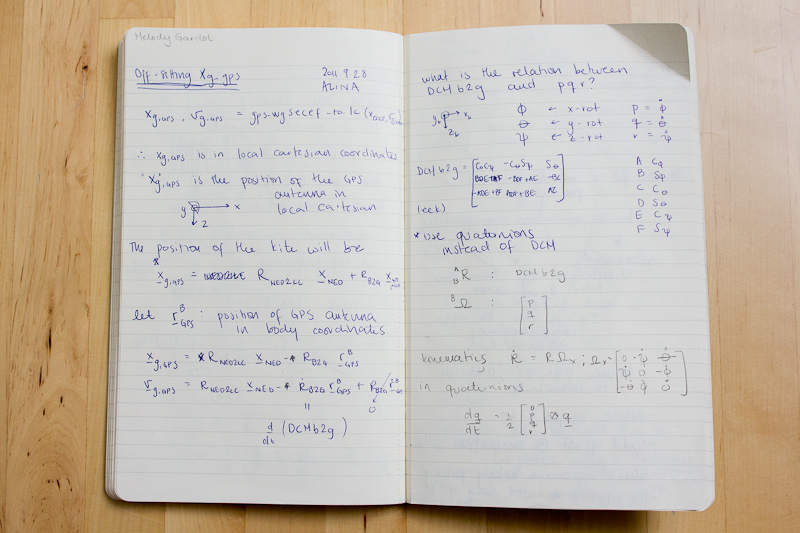 Melody Gardot
Off-setting Xg-gps
2011.9.28
ALINA
xg,GPS, vg,GPS = gps-wgsecef-to-lc
∴ xg,GPS is in local cartesian coordinates
xg,GPS is the position of the GPS
antenna in
local cartesian
y x
z
The position of the kite will be
xg,GPS = RNED2LC xNED + RB2G
let rGPS^B : position of GPS antenna
in body coordinates
xg,GPS = RNED2LC xNED - RB2G rGPS^B
vg,GPS = RNED2LC xNED - ṘB2G rGPS^B + RB2G
"
0
d/dt (DCMb2g)
what is the relation between
DCMb2g and pqr?
yb xb
zb
φ ← x-rot p = φ̇
θ ← y-rot q = θ̇
ψ ← z-rot r = ψ̇
DCMb2g = [CθCψ -CθSψ Sθ
-BDF+AE -BC
-ADE+BF ADF+BE AC]
A Cφ
B Sφ
C Cθ
D Sθ
E Cψ
F Sψ
(eek)
* use quaternions
instead of DCM
A B R : DCMb2g
BΩ : [p
q
r]
kinematics Ṙ = RΩx ; Ωx = [0 -ψ̇ θ̇
ψ̇ 0 -φ̇
-θ̇ φ̇ 0]
in quaternions
dq/dt = 1/2 [0 p q r] ⊗ q